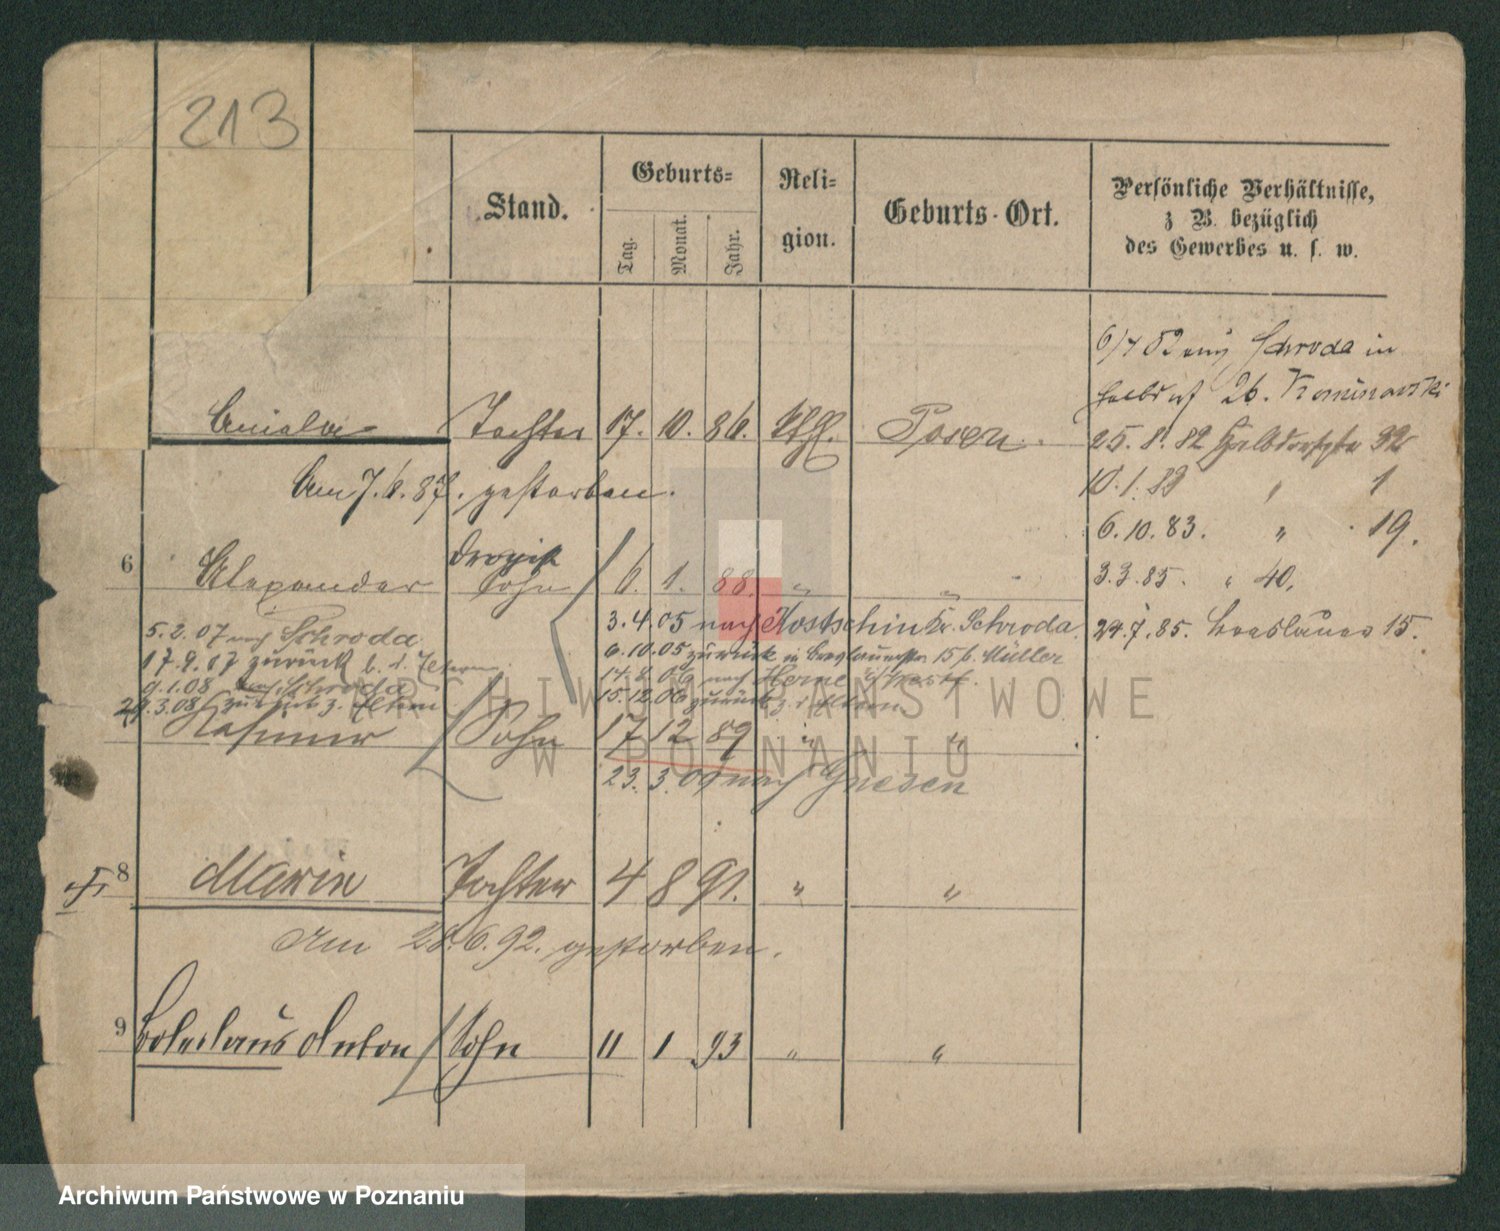 213
Stand.
Geburts-
Tag.
Monat.
Jahr.
Reli-
gion.
Geburts-Ort.
Persönliche Verhältnisse,
z B. bezüglich
des Gewerbes u. s. w.
Schroda in
26.
Tochter 17. 10. 86. Posen.
25. 8. 82 32
Am 7. 8. 87. gestorben.
10. 1. 83 " 1
6. 10. 83. " 19.
6 Alexander Sohn 6. 1. 88. " "
3. 3. 85. " 40.
3. 4. 05 nach Kostschin Kr. Schroda.
7. 85. Breslauer 15.
5. 2. 07 nach Schroda
6. 10. 05 zurück in Breslauerstr 15 b. Müller
17. 9. 07 zurück b. d. Eltern
14. 8. 06 nach Herne
9. 1. 08 nach Schroda
15. 12. 06 zurück z. d. Eltern
3. 08 zurück z. Eltern
Kasimir Sohn 17 12 89 " "
23. 3. 09 nach Gnesen
8 Marie Tochter 4 8 91. " "
Am 28. 6. 92. gestorben.
9 Boleslaus Anton Sohn 11 1 93 " "
ARCHIWUM PAŃSTWOWE
W POZNANIU
Archiwum Państwowe w Poznaniu